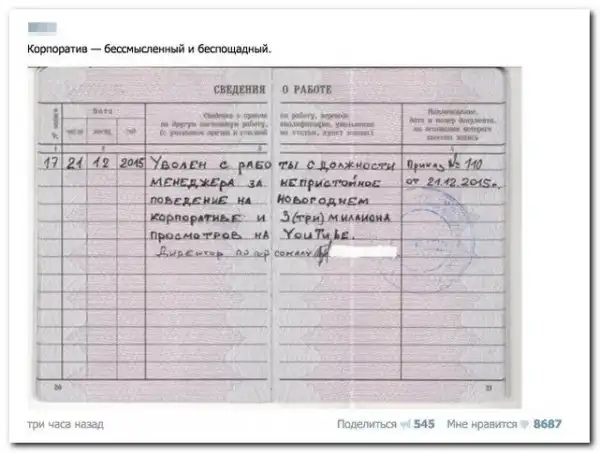 Корпоратив — бессмысленный и беспощадный.
СВЕДЕНИЯ О РАБОТЕ
№ записи
Дата
число месяц год
Сведения о приеме на работу, переводе
на другую постоянную работу, квалификации, увольнении
(с указанием причин и ссылкой на статью, пункт закона)
Наименование,
дата и номер документа,
на основании которого
внесена запись
1 2 3 4
17 21 12 2015 УВОЛЕН С РАБОТЫ С ДОЛЖНОСТИ Приказ № 110
МЕНЕДЖЕРА ЗА НЕПРИСТОЙНОЕ от 21.12.2015г.
ПОВЕДЕНИЕ НА НОВОГОДНЕМ
КОРПОРАТИВЕ И 3 (три) МИЛЛИОНА
ПРОСМОТРОВ НА YOUTUBE.
Директор по персоналу
три часа назад
Поделиться 545 Мне нравится 8687